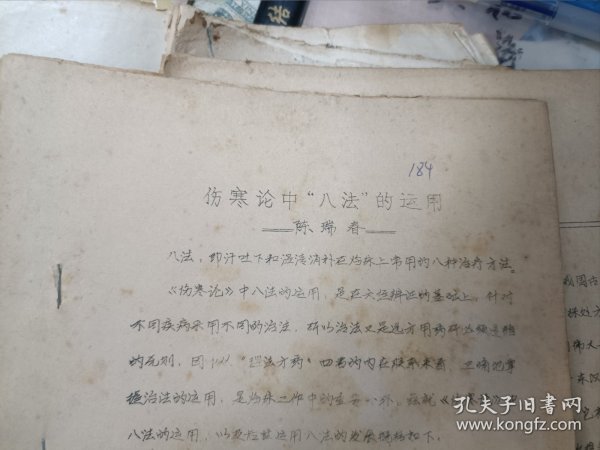 184
伤寒论中“八法”的运用
陈瑞春
八法，即汗吐下和温清消补在临床上常用的八种治疗方法。
《伤寒论》中八法的运用，是在六经辨证的基础上，针对
不同疾病采用不同的治法，所以治法又是选方用药所必须遵循
的原则，因此从“理法方药”四者的内在联系来看，正确地掌
握治法的运用，是临床工作中的重要一环。
八法的运用，以及后世运用八法的发展情况如下：
孔夫子旧书网
www.kongfz.com